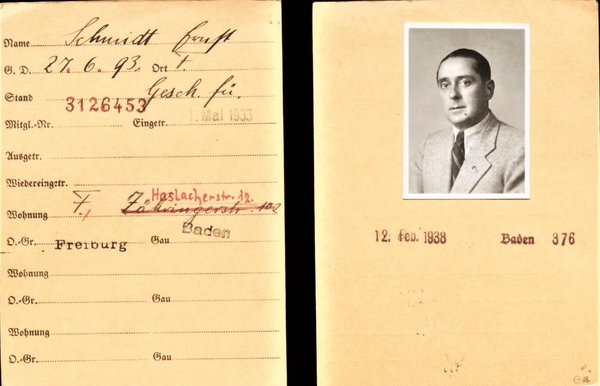 Name Schmidt Ernst
G. D. 27. 6. 93. Ort F.
Stand Gesch. fü.
3126453
Mitgl.-Nr. Eingetr. 1. Mai 1933
Ausgetr.
Wiedereingetr.
Haslacherstr. 12.
Wohnung F., Zähringerstr. 102
Baden
O.-Gr. Freiburg Gau
Wohnung
O.-Gr. Gau
Wohnung
O.-Gr. Gau
12. Feb. 1938 Baden 376